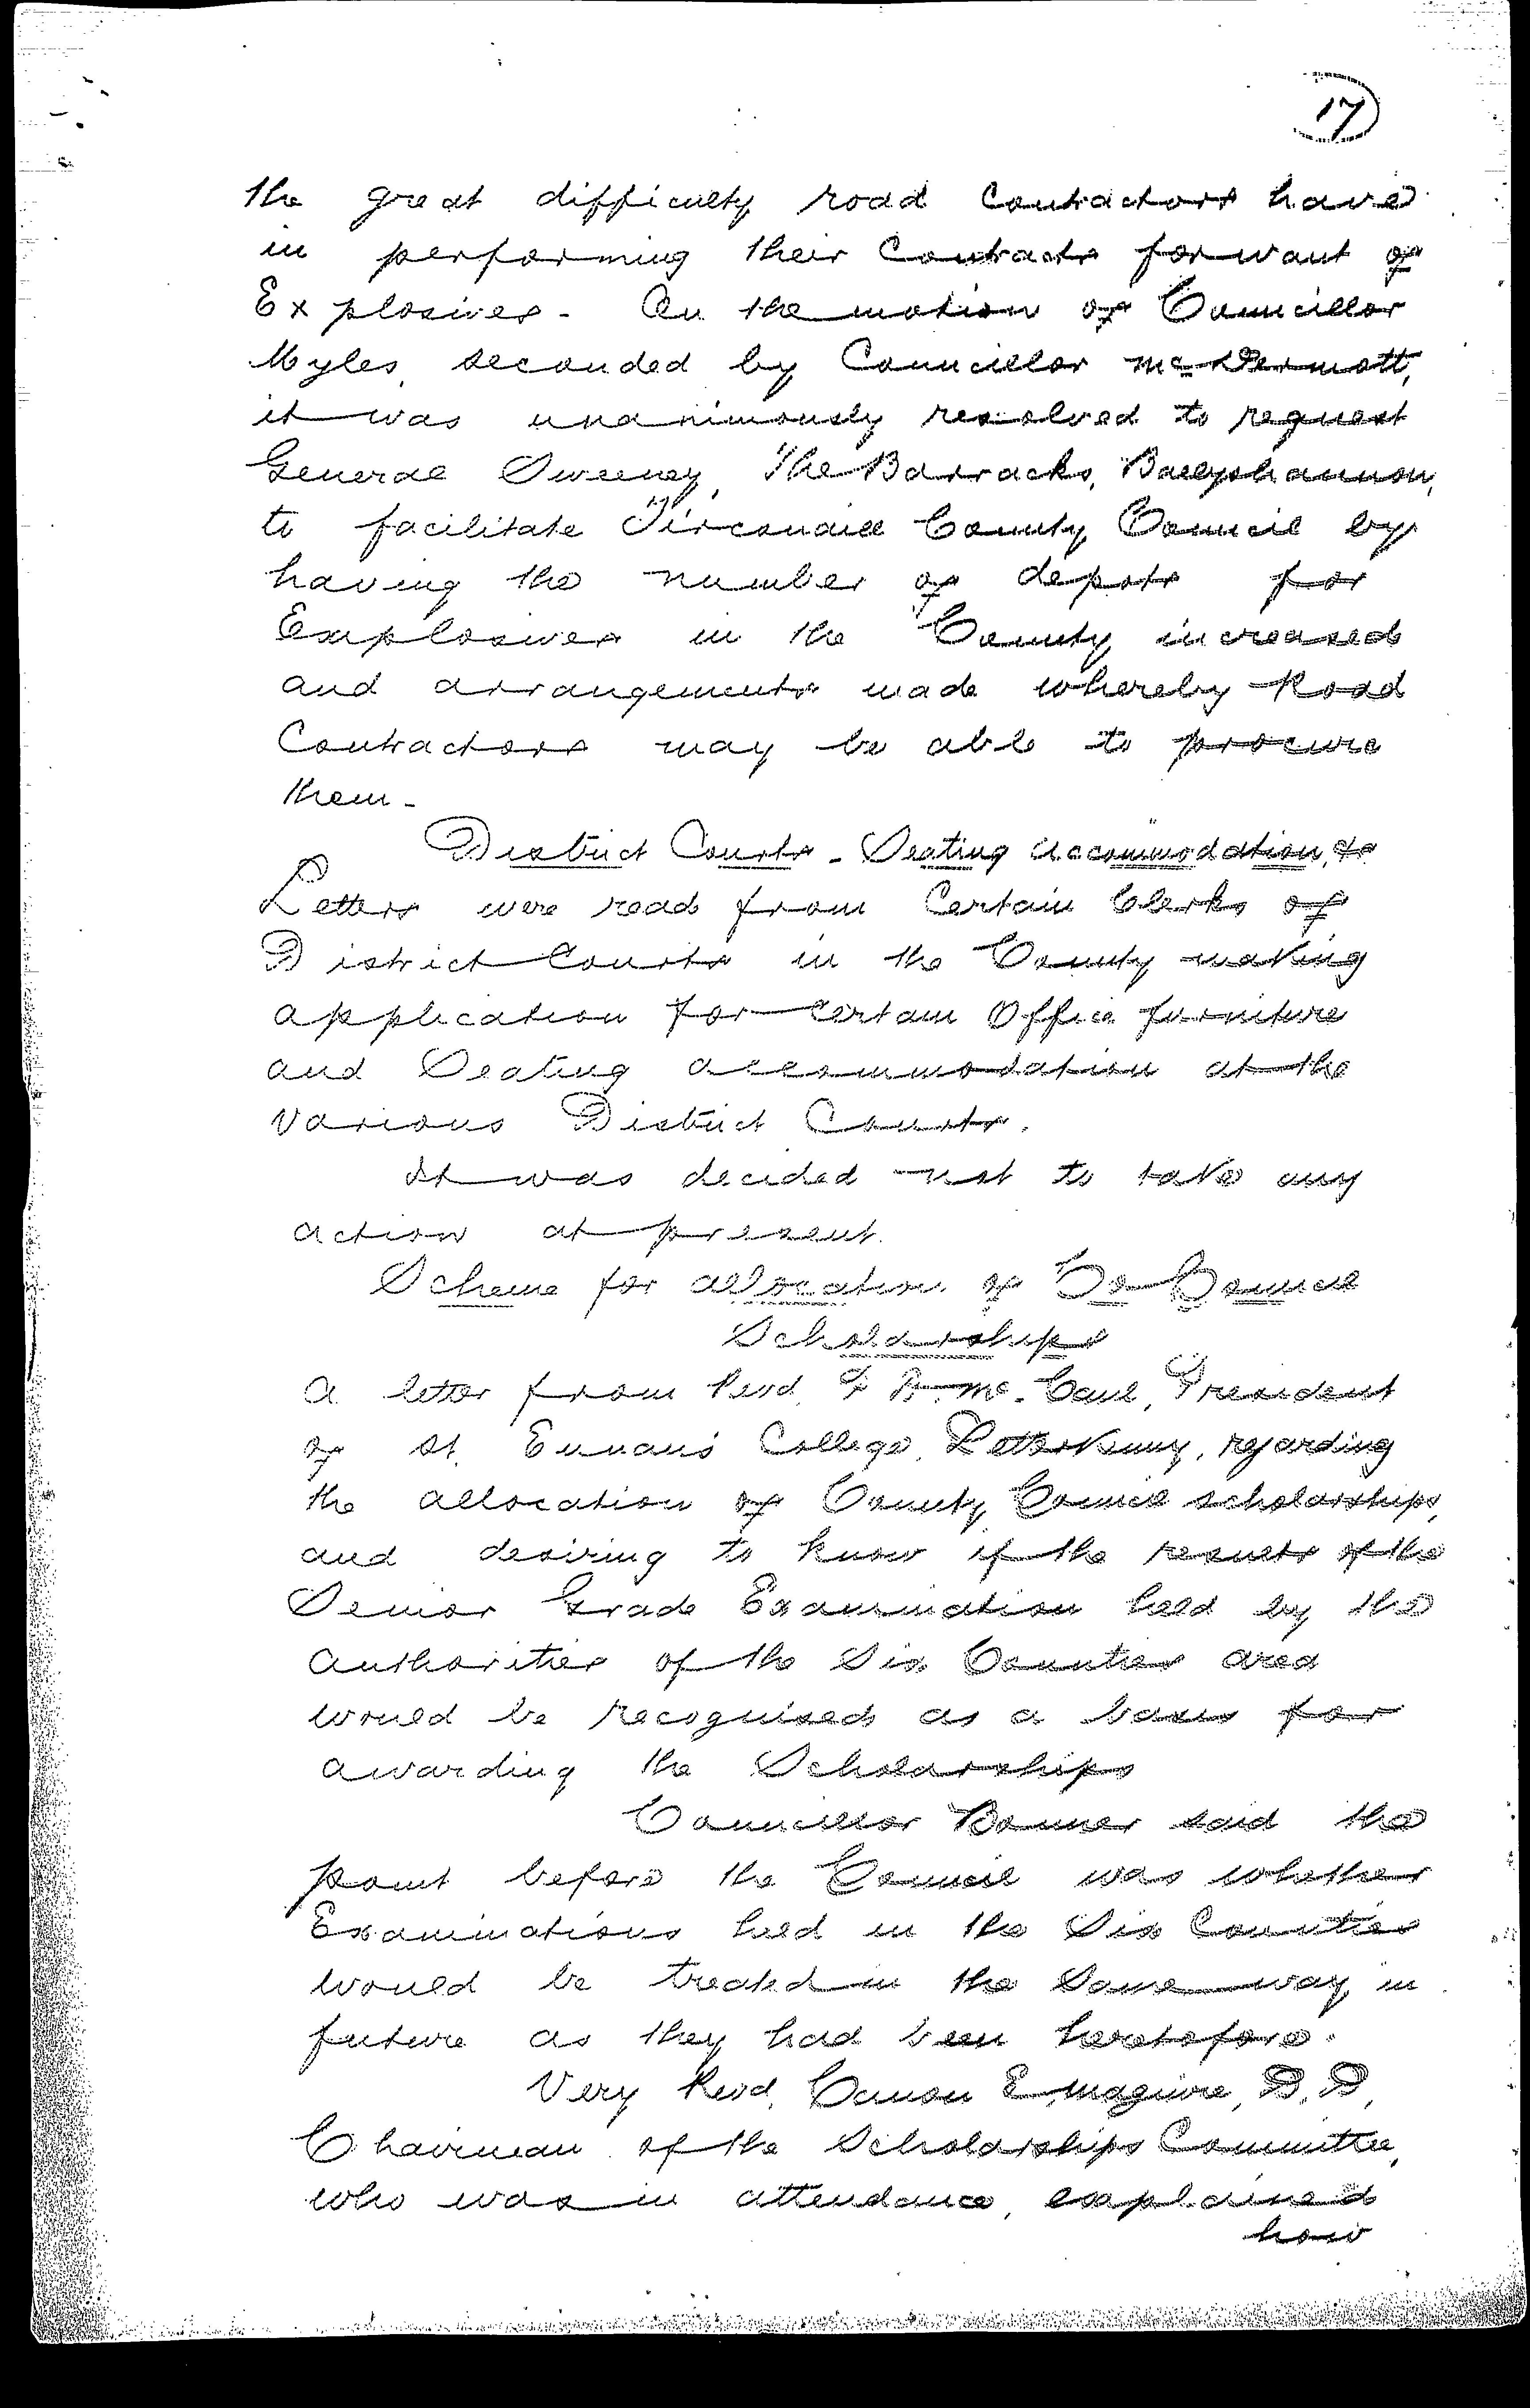 17
the great difficulty road Contractors have
in performing their Contracts for want of
Explosives - On the motion of Councillor
Myles, seconded by Councillor McDermott,
it was unanimously resolved to request
General Sweeney, The Barracks, Ballyshannon,
to facilitate Tirconaill County Council by
having the number of depots for
Explosives in the County increased
and arrangements made whereby Road
Contractors may be able to procure
them -
District Courts - Seating accommodation, &c
Letters were read from Certain Clerks of
District Courts in the County making
application for Certain Office furniture
and Seating accommodation at the
various District Courts.
It was decided not to take any
action at present.
Scheme for allocation of Co Council
Scholarships
A letter from Revd. McCaul, President
of St. Eunan's College, Letterkenny, regarding
the allocation of County Council scholarships,
and desiring to know if the results of the
Senior Grade Examination held by the
Authorities of the Six Counties area
would be recognised as a basis for
awarding the Scholarships
Councillor Bonner said the
point before the Council was whether
Examinations held in the Six Counties
would be treated in the same way in
future as they had been heretofore.
Very Revd. Canon E. Maguire, D.D,
Chairman of the Scholarships Committee,
who was in attendance, explained
how